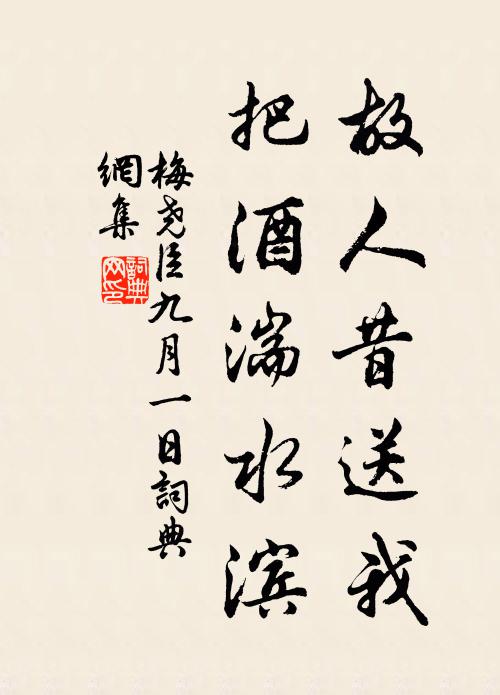 故人昔送我
把酒湍水滨
梅尧臣九月一日詞典
網集
詞典
网印